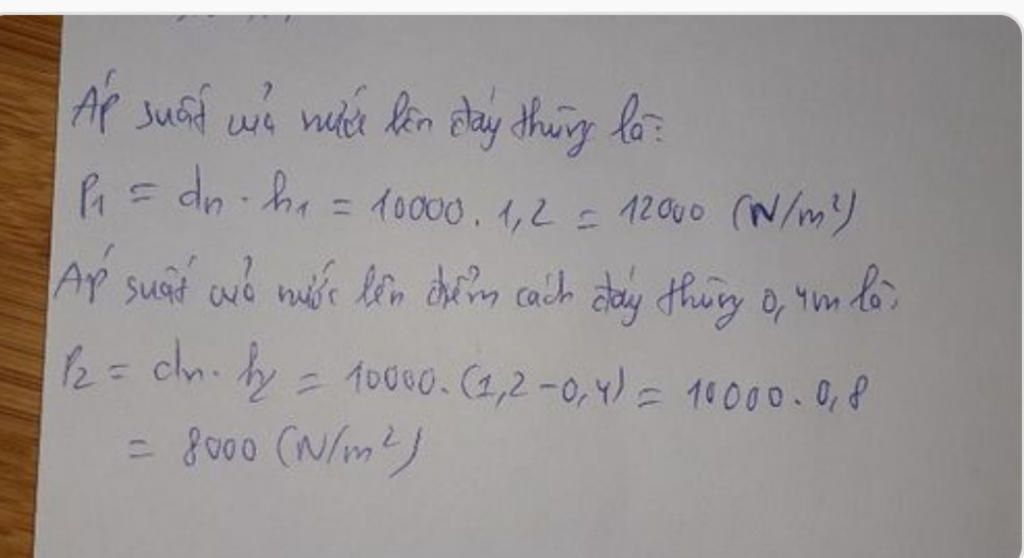 Áp suất của nước lên đáy thùng là:
P₁ = dn . h₁ = 10000 . 1,2 = 12000 (N/m²)
Áp suất của nước lên điểm cách đáy thùng 0,4m là:
P₂ = dn . h₂ = 10000 . (1,2 - 0,4) = 10000 . 0,8
= 8000 (N/m²)